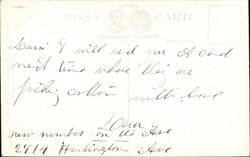 POST CARD.
I will send you a card
next time where they are
picking cotton
with love
new number on the Ave
2714 Huntington Ave